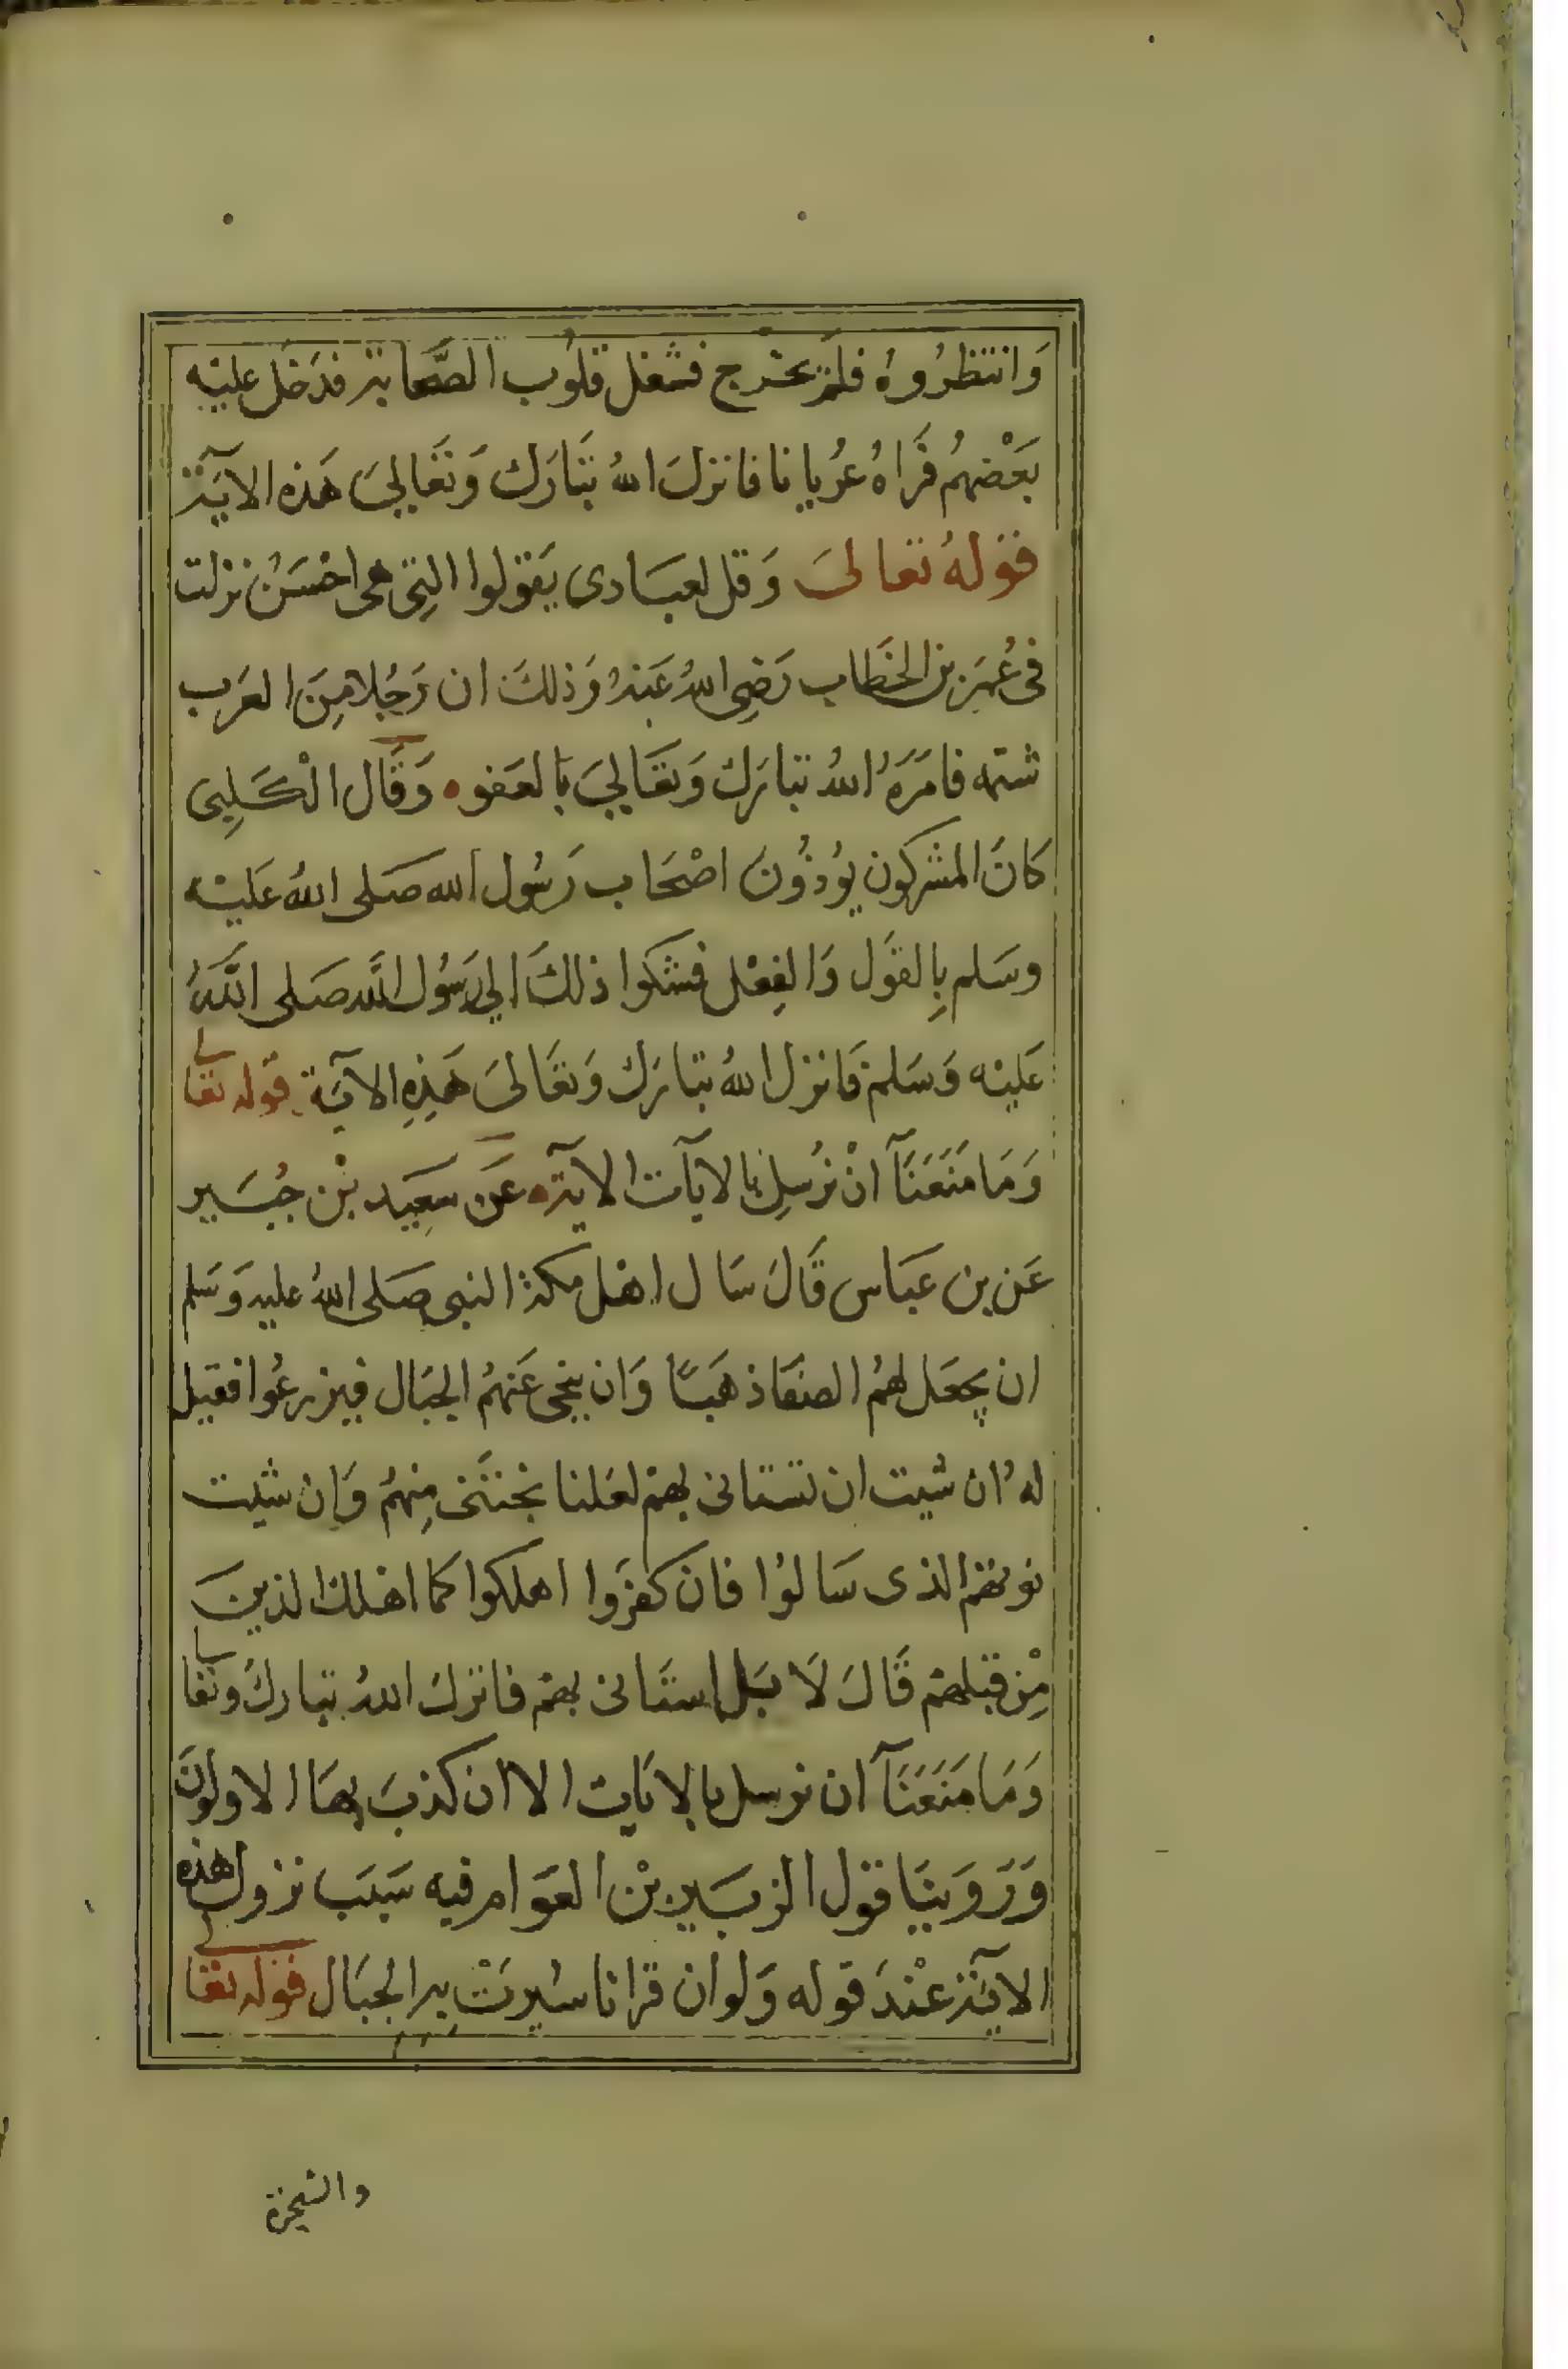 وَانتظرُوهُ فلمْ يخرج فشغل قلوُب الصَّحابة فدَخَل عليْه
بَعْضهمُ فَراهُ عُريانا فانزلَ اللهُ تبَارَك وَتعَاليَ هَذه الآيَة
قولهُ تعالىَ وَقل لعبَادى يَقولوا التِى هى احْسَنُ نزلت
فى عُمَر بن الخَطاب رَضِى اللهُ عَنهُ وَذلكَ ان رَجُلا مِنَ العَرَب
شتمه فامَرَهُ اللهُ تبارَك وَتعَاليَ بالعَفو ه وَقَال الْكَلِبِى
كانَ المشركون يوُذُونَ اصْحَاب رَسُول الله صَلى اللهُ عَليْه
وسَلم بِالقوَل وَالفِعْل فشكوا ذلكَ الي رَسُول اللَّه صَلى اللَّهُ
عَليْه وَسَلم فَانزل اللهُ تبارَك وَتعَالىَ هَذِهِ الآية قوله تعالي
وَمَا مَنَعَنَآ انْ نُرْسِل بالايَات الآية ه عَن سَعِيَد بْن جُبَير
عَن بن عَبَاس قَالَ سَال اهْل مكة النبى صَلى اللهُ عليه وَسَلم
ان يجعَل لهمُ الصَفا ذهَبًا وَان ينحى عَنهمُ الجبَال فيزرعُوا فقيل
لهُ ان شيت ان تستانى بهمْ لعَلنا نجتنَى مِنهمُ وَانُ شيت
نوتهمْ الذى سَالوُا فانَ كفرَوا اهلكوا كما اهْلك الذينَ
مِنْ قبلهمْ قَالَ لَا بَل استَانى بهمْ فانزلَ اللهُ تبارك وتعالي
وَمَا مَنَعَنَآ ان نرسل بالايَات الا ان كذبَ بهَا الاولونَ
وَرَوَينَا قول الزبَير بْن العَوام فيه سَبَب نزول هذه
الآية عْندَ قوله وَلو ان قرانا سُيرتْ به الجبَال قوله تعالي
والشجرة